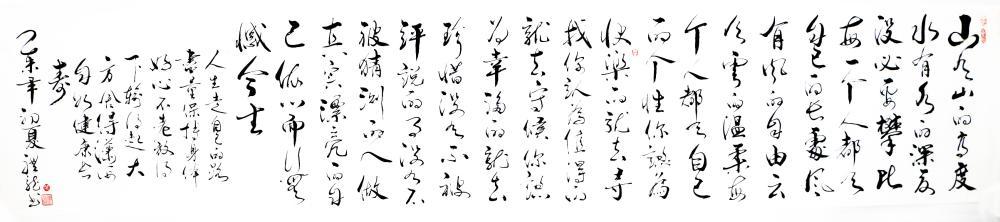 山有山的高度
水有水的深度
没必要攀比
每一个人都有
自己的长处风
有风的自由云
有云的温柔每
个人都有自己
的个性你认为
快樂的就去寻
找你认为值得的
就去守候你认
为幸福的就去
珍惜没有不被
评说的事没有不
被猜测的人做
真实漂亮的自
己依心而行无
憾今生
人生走自己的路
盡量保持身体
好心不老放得
下输得起大
方得潇洒
自如健康长
寿
年初夏书